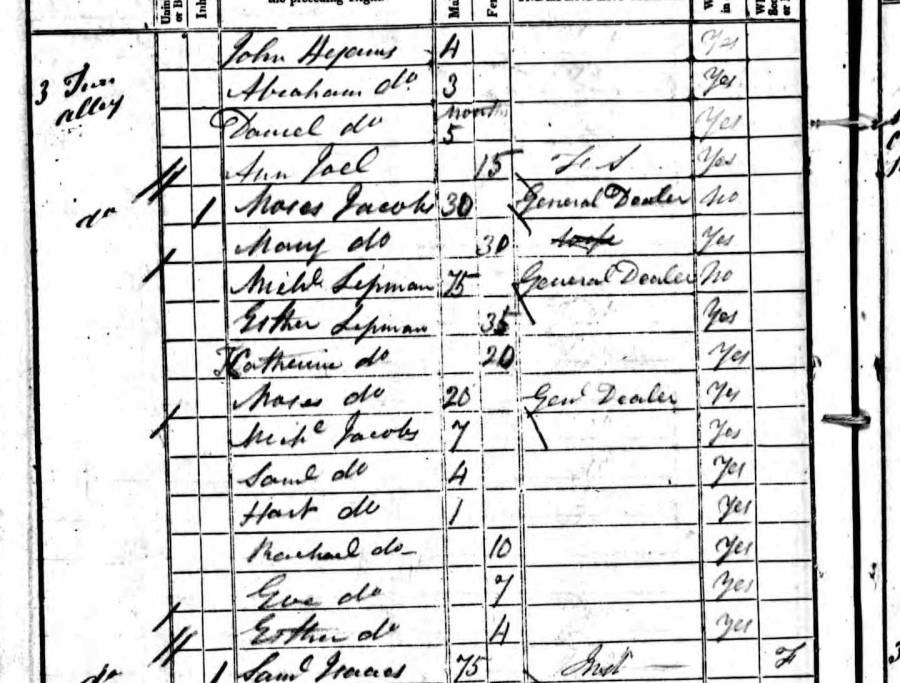 the preceding Night.
John Hyams 4 Yes
3 Tun Abraham do. 3 Yes
alley
Daniel do months 5 Yes
Ann Joel 15 F S Yes
do 1 Moses Jacobs 30 General Dealer No
Mary do 30 Yes
Michl Lipman 75 General Dealer No
Esther Lipman 35 Yes
Katherine do 20 Yes
Moses do 20 Genl Dealer Yes
Michl Jacobs 7 Yes
Saml do 4 Yes
Hart do 1 Yes
Rachael do 10 Yes
Eve do 7 Yes
Esther do 4 Yes
do 1 Saml Isaacs 75 Ind F